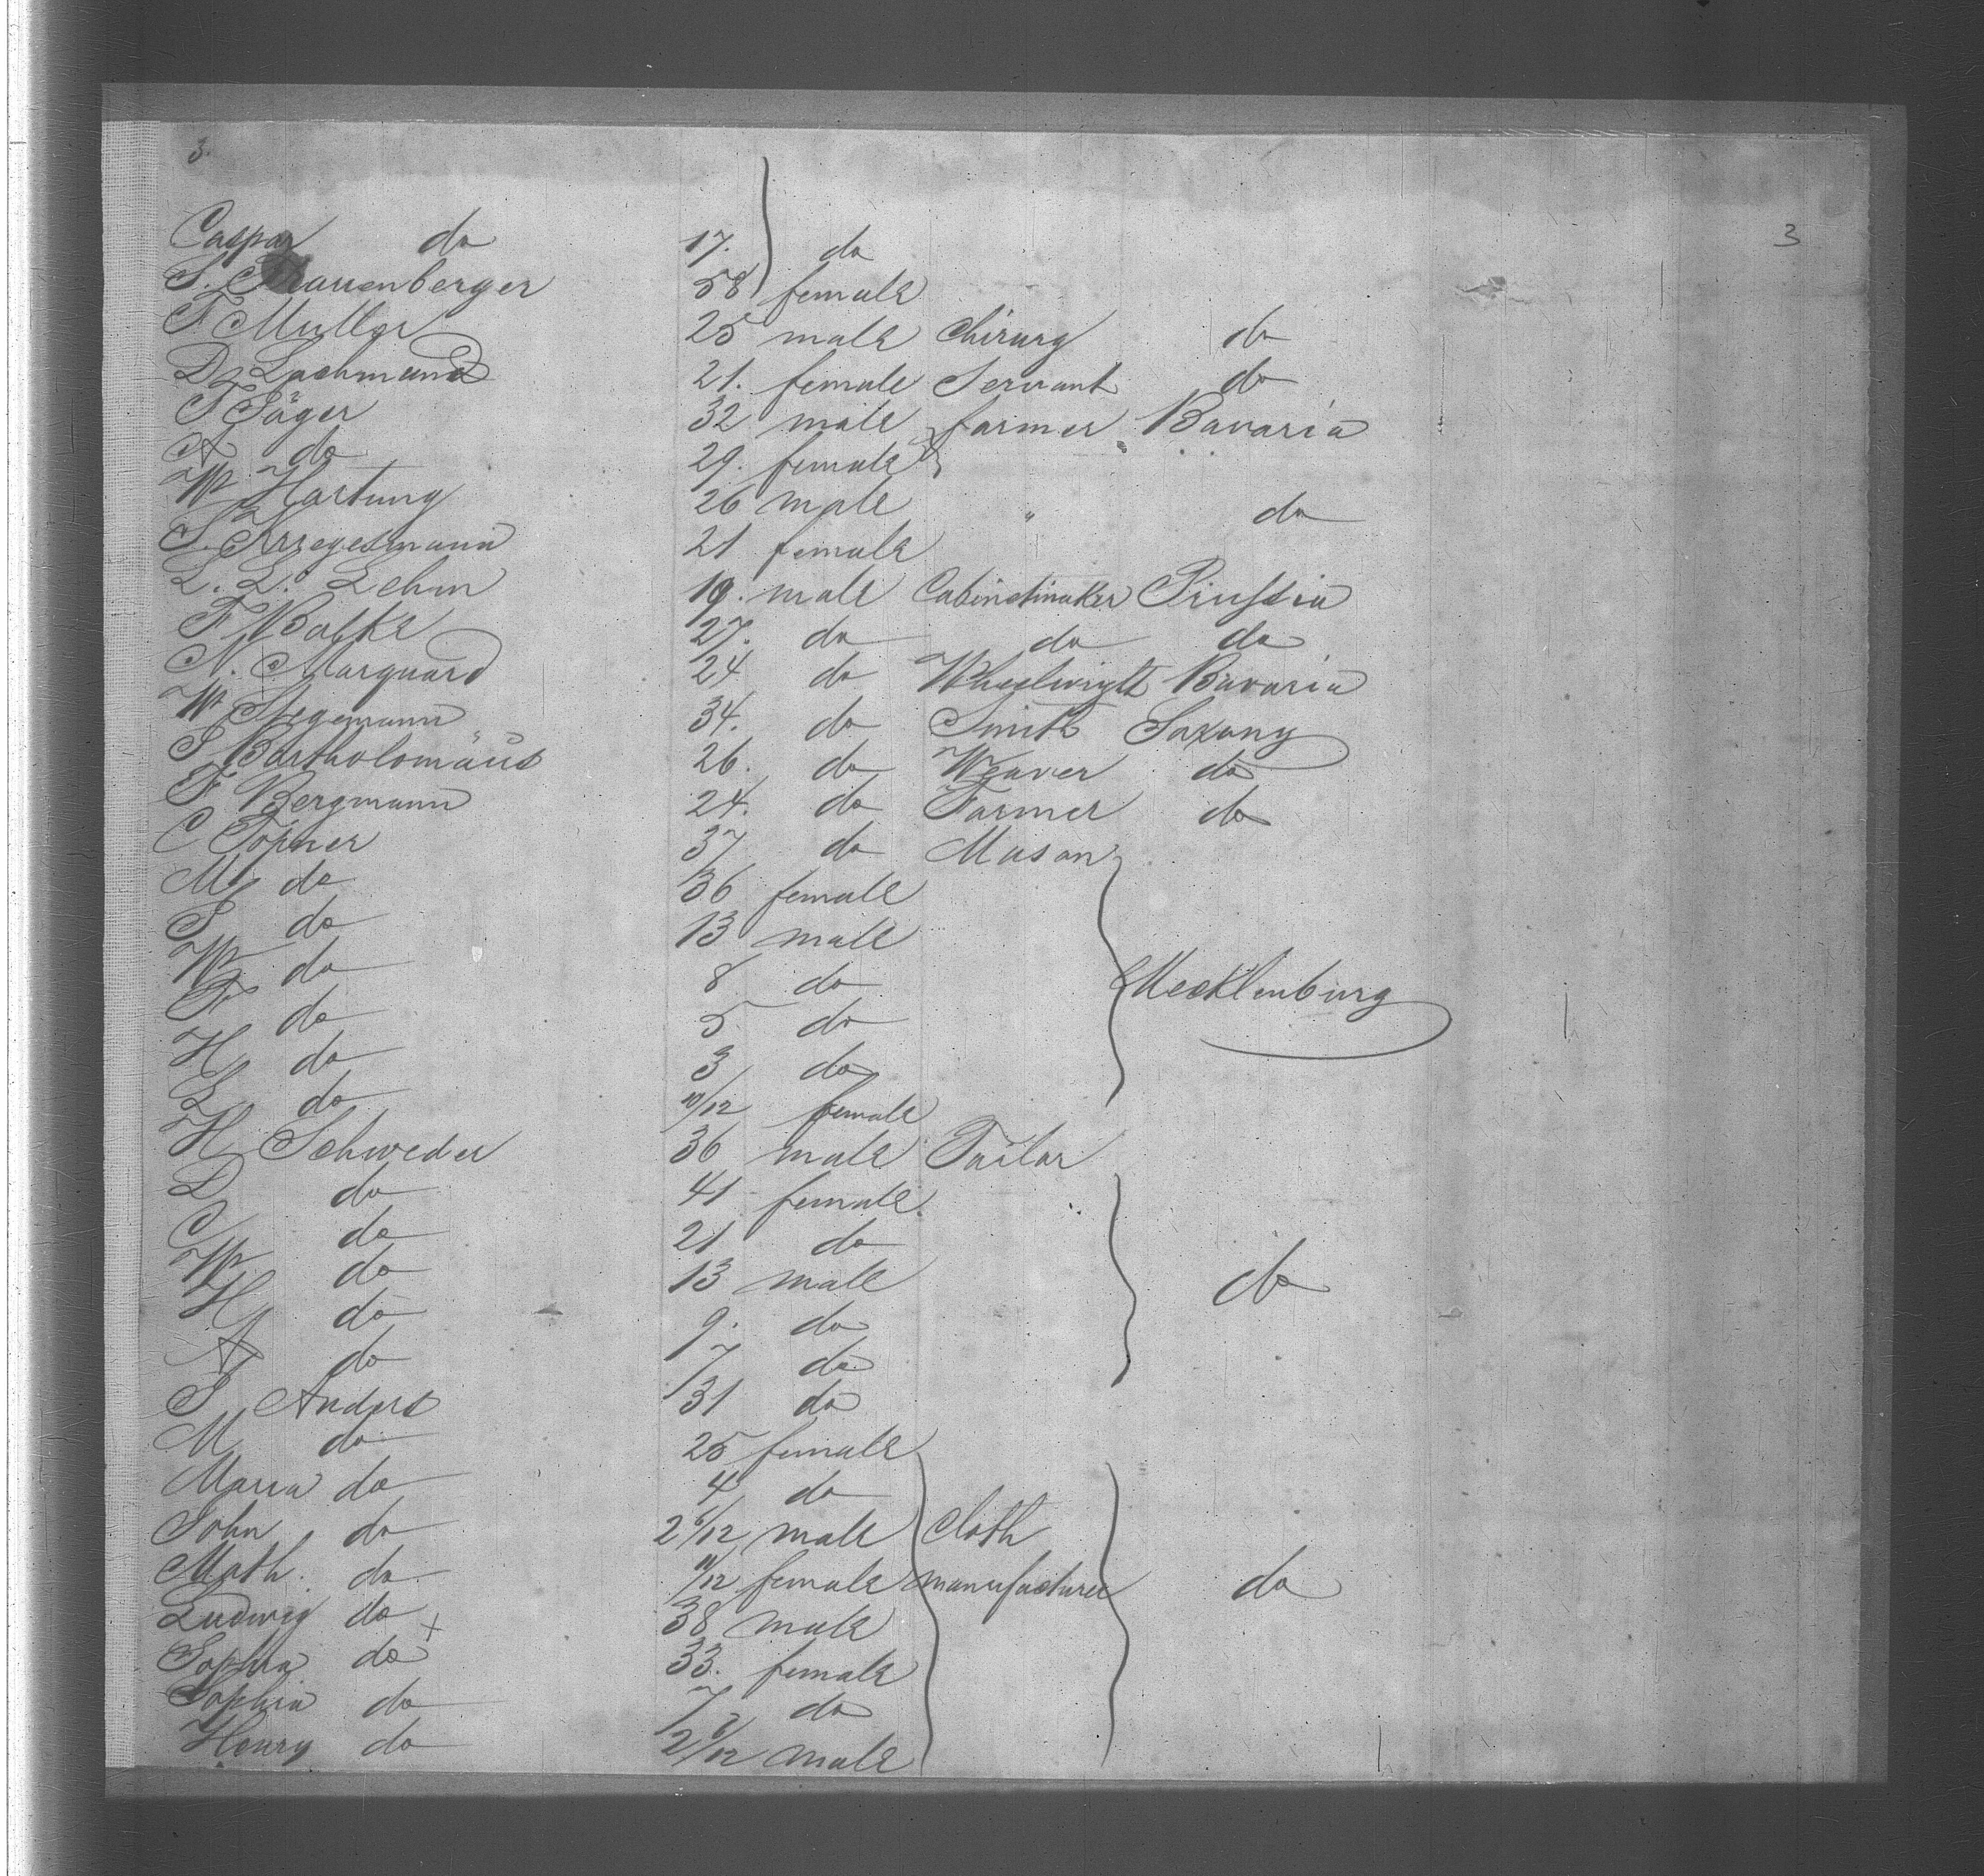 3. 3
Caspar do 17. do
S. Frauenberger 58 female
F Muller 25 male Chirurg do
D Lachmund 21. female Servant do
F Jäger 32 male farmer Bavaria
A do 29. female
W Hartung 26 male " do
S. Kriegesmann 21 female
L. L. Lehm 19. male Cabinetmaker Prussia
F. Batke 27. do do do
N. Marquard 24 do Wheelwright Bavaria
W Stegemann 34. do Smith Saxony
J Bartholomäus 26. do Weaver do
F Bergmann 24. do Farmer do
C Töpner 37 do Mason
M do 36 female
J do 13 male
W do 8 do Mecklenburg
F do 5 do
H do 3 do
L do 10/12 female
H Schweder 36 male Tailor
D do 41 female
C do 21 do
W do 13 male do
H do 9. do
A do 7 do
J Anders 31 do
M do 25 female
Maria do 4 do
John do 2 6/12 male Cloth
Math. do 11/12 female manufacturer do
Ludwig do + 38 male
Sophia do 33. female
Sophia do 7 do
Henry do 2 /12 male